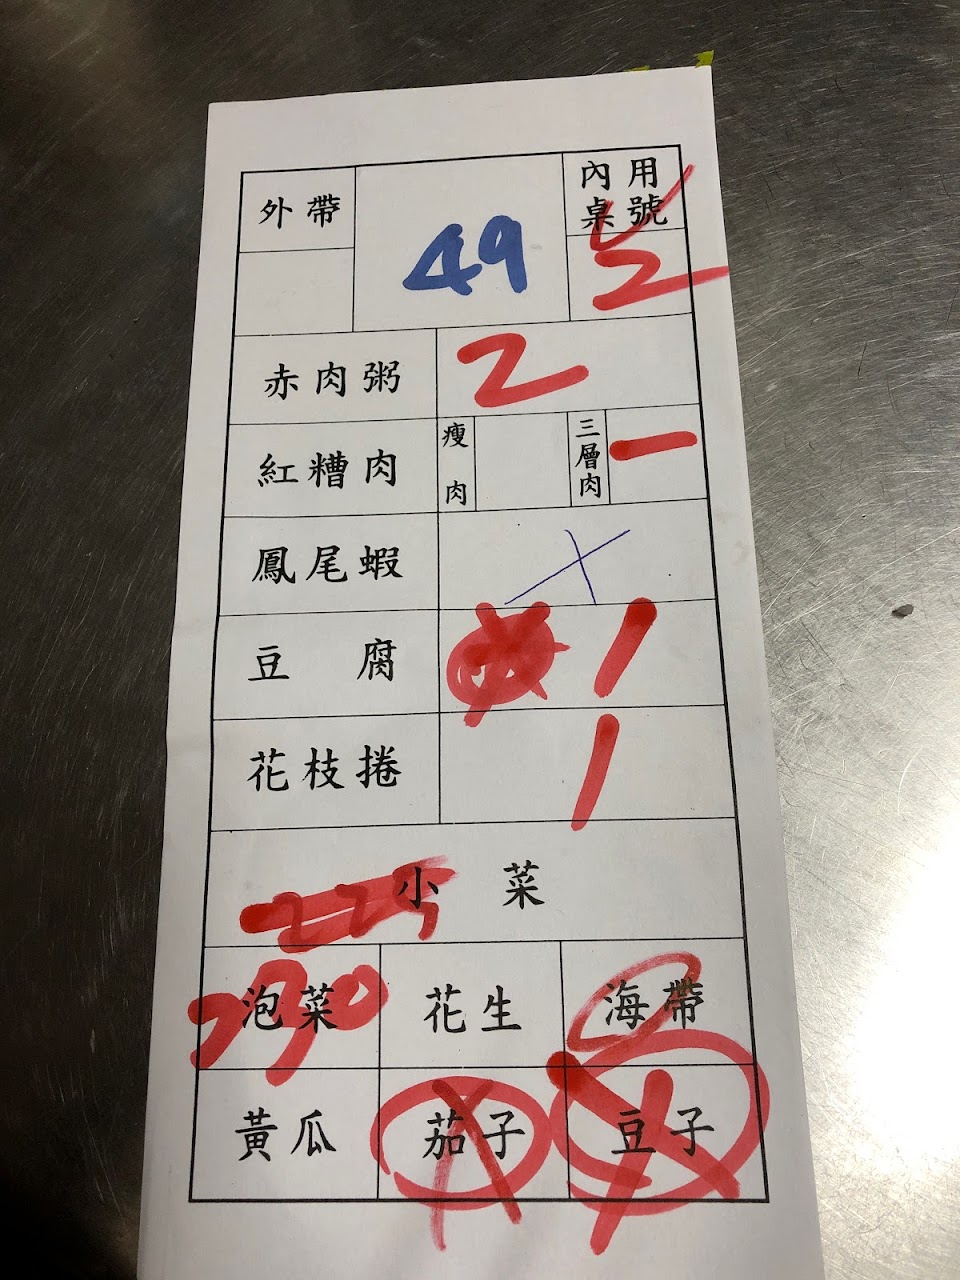 外帶
49
內用
桌號
2
赤肉粥 2
紅糟肉 瘦肉 三層肉 一
鳳尾蝦 X
豆腐 1
花枝捲 1
小菜
225
290
泡菜 花生 海帶
黃瓜 茄子 豆子